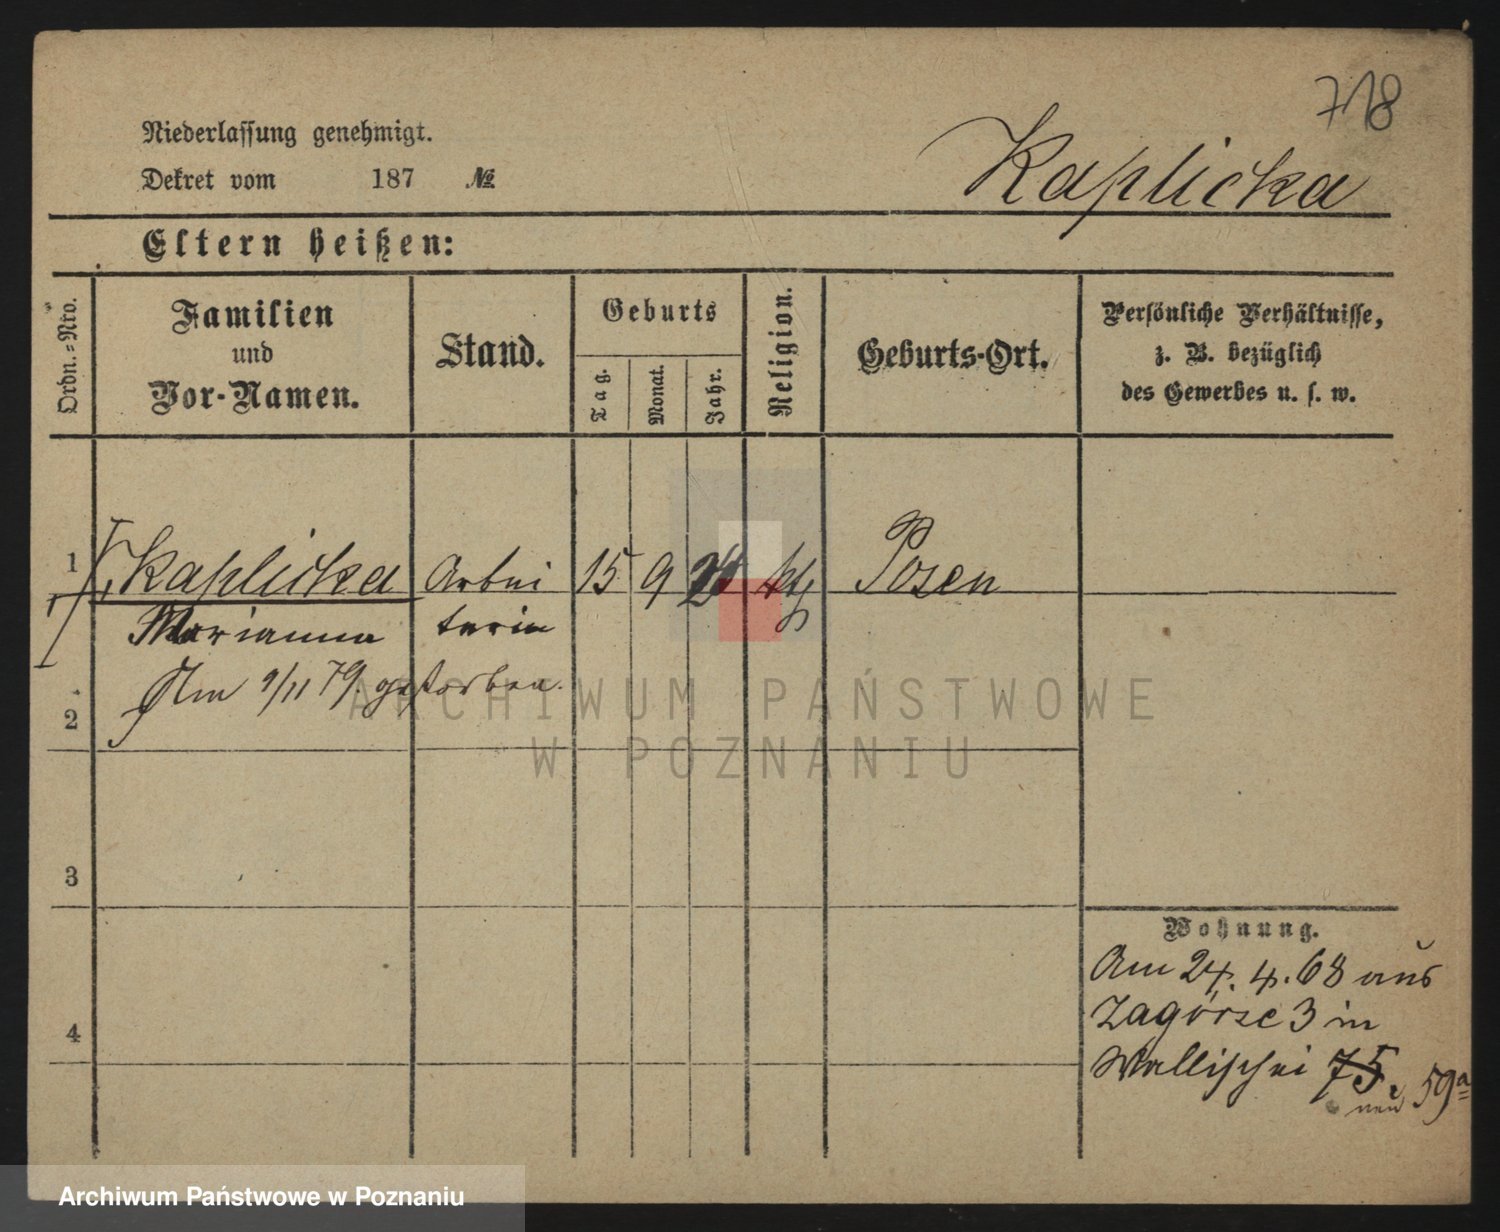 718
Niederlassung genehmigt.
Dekret vom 187 №
Kaplicka
Eltern heißen:
Ordn.=Nro.
Familien
und
Vor-Namen.
Stand.
Geburts
Tag.
Monat.
Jahr.
Religion.
Geburts-Ort.
Persönliche Verhältnisse,
z. B. bezüglich
des Gewerbes u. s. w.
1 Kaplicka Arbei 15 9 kth Posen
Marianna terin
Am 9/11 79. gestorben.
2
3
4
Wohnung.
Am 24. 4. 68 aus
Zagórze 3 in
Wallischei 75.
neu 59a
ARCHIWUM PAŃSTWOWE
W POZNANIU
Archiwum Państwowe w Poznaniu